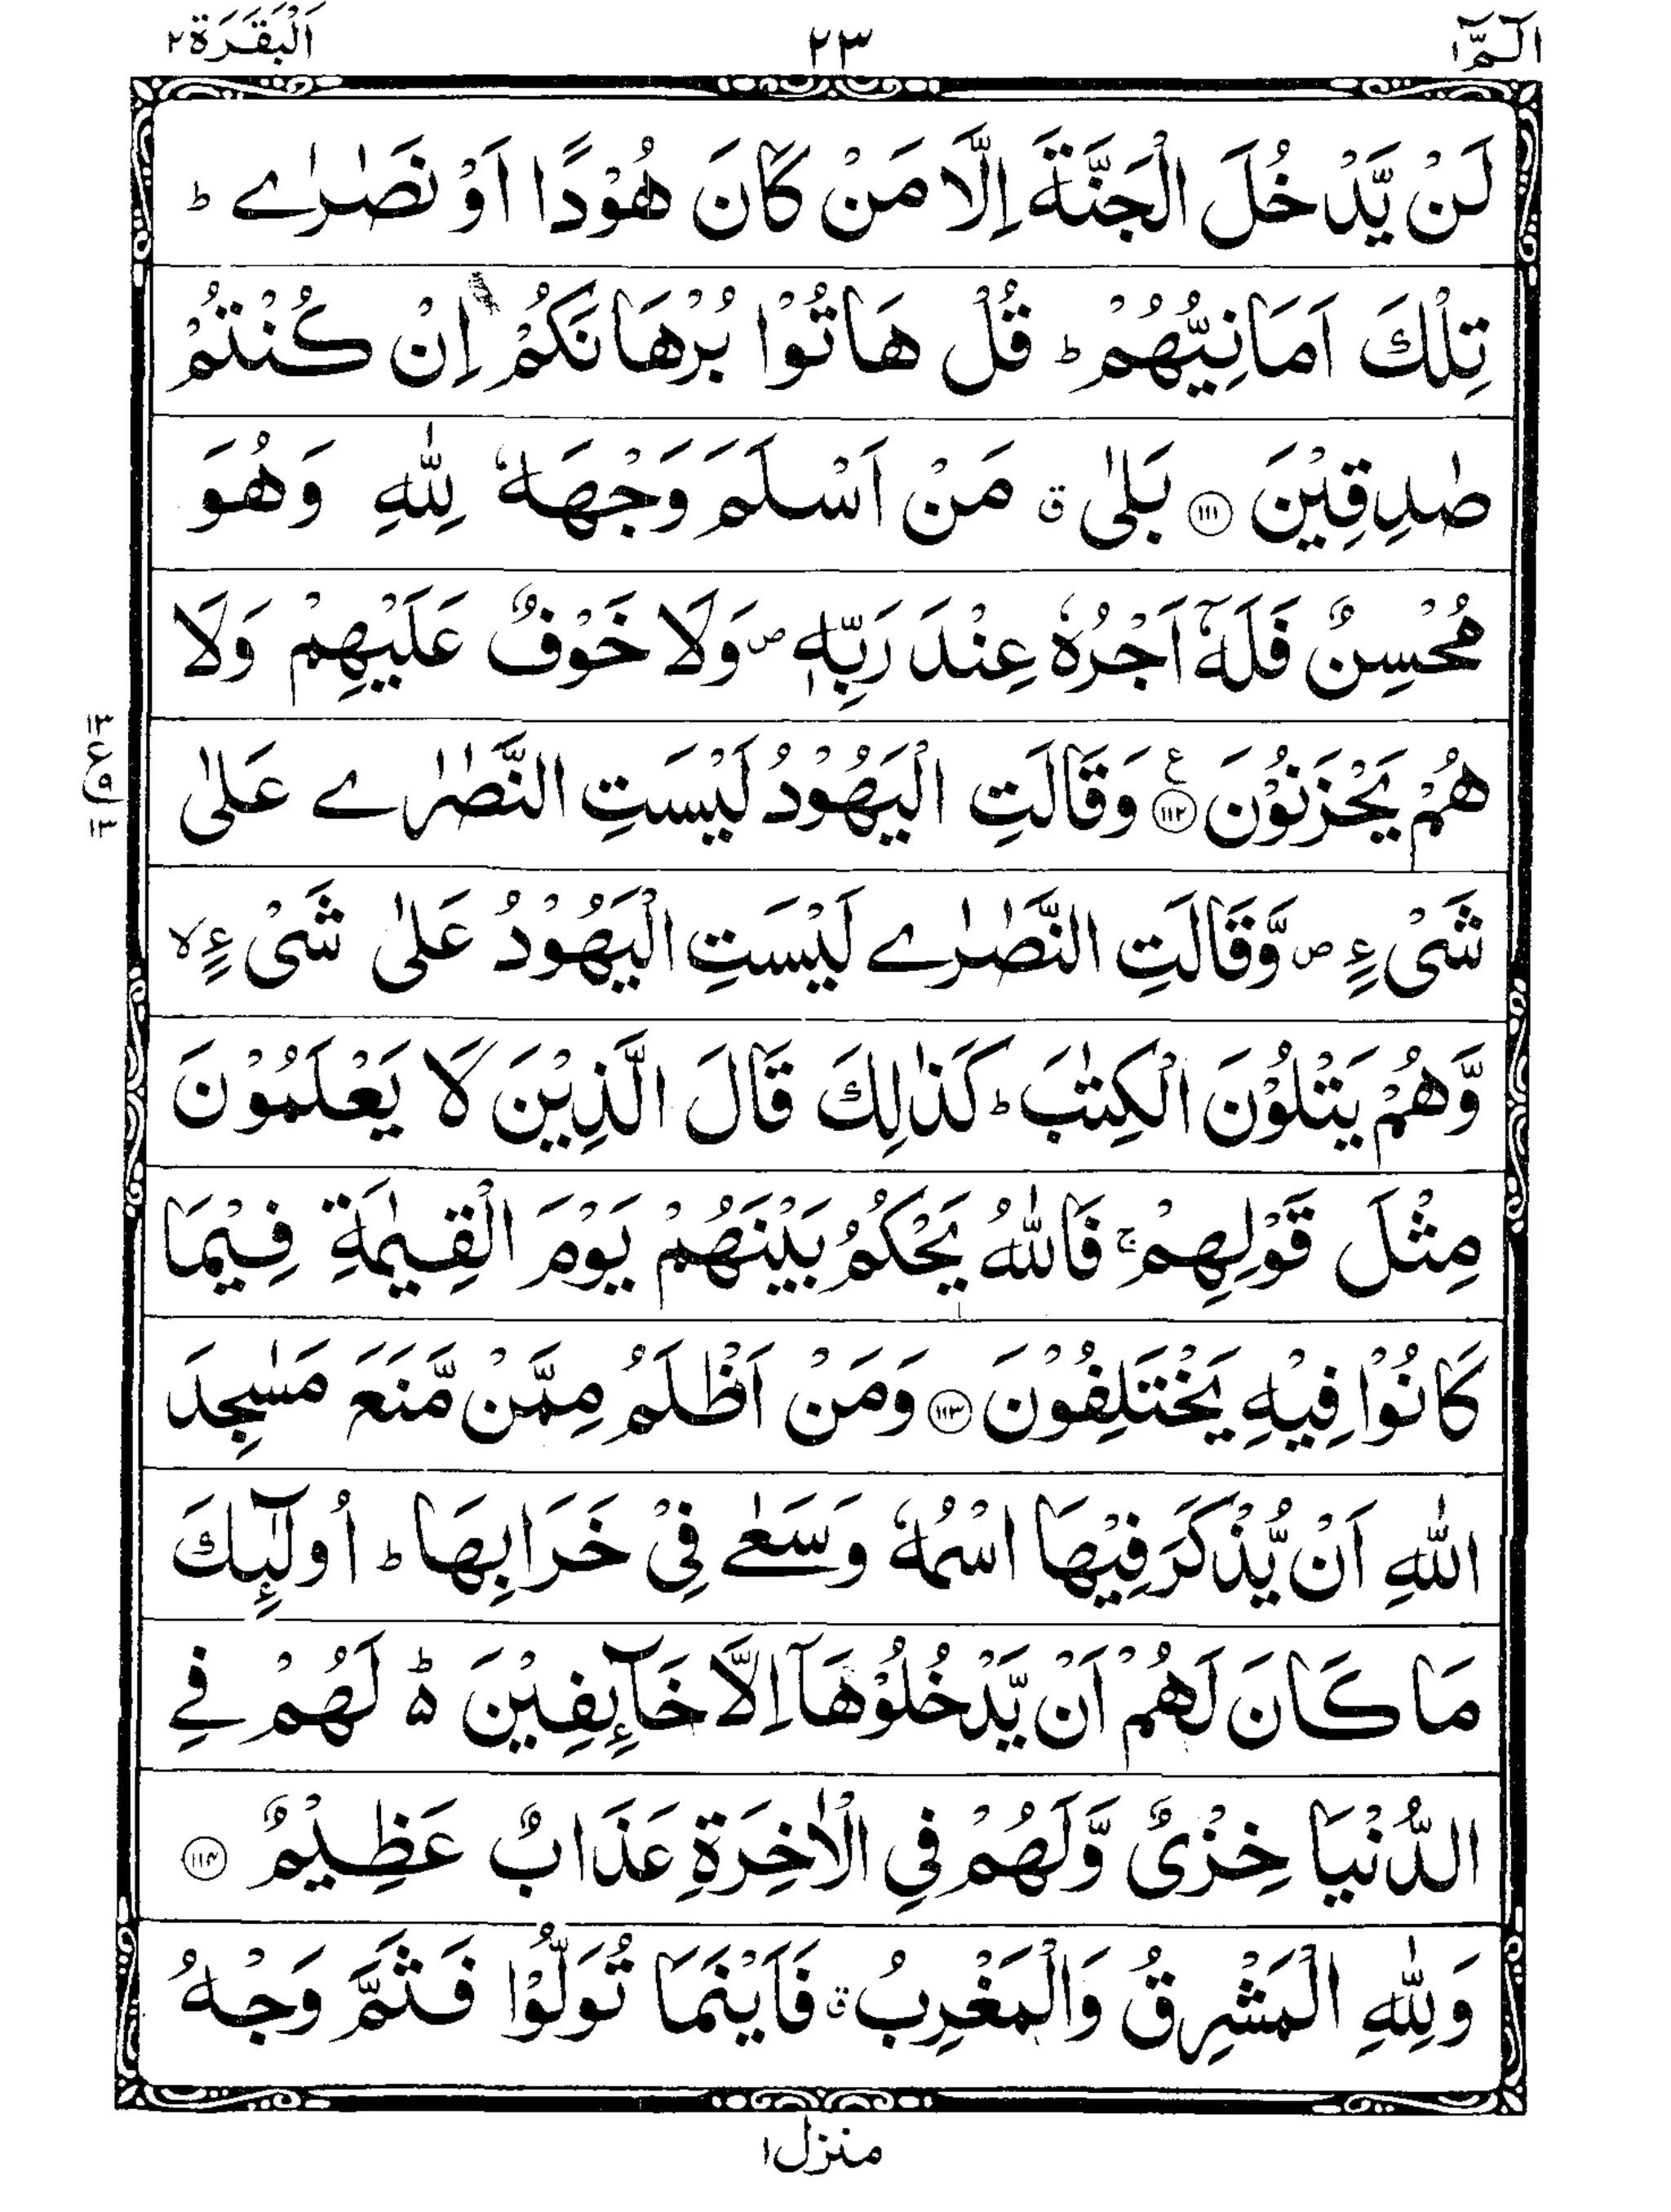 الٓمّٓ ١
٢٣
اَلْبَقَرَة ٢
لَنْ يَّدْخُلَ الْجَنَّةَ اِلَّا مَنْ كَانَ هُوْدًا اَوْ نَصٰرٰے ؕ
تِلْكَ اَمَانِيُّهُمْ ؕ قُلْ هَاتُوْا بُرْهَانَكُمْ اِنْ كُنْتُمْ
صٰدِقِيْنَ ﴿١١١﴾ بَلٰى ۗ مَنْ اَسْلَمَ وَجْهَهٗ لِلّٰهِ وَهُوَ
مُحْسِنٌ فَلَهٗۤ اَجْرُهٗ عِنْدَ رَبِّهٖ ۪ وَلَا خَوْفٌ عَلَيْهِمْ وَلَا
هُمْ يَحْزَنُوْنَ ﴿١١٢﴾ ع وَقَالَتِ الْيَهُوْدُ لَيْسَتِ النَّصٰرٰے عَلٰى
١٣
ع
٩
١٣
شَىْءٍ ۪ وَّقَالَتِ النَّصٰرٰے لَيْسَتِ الْيَهُوْدُ عَلٰى شَىْءٍ ۙ
وَّهُمْ يَتْلُوْنَ الْكِتٰبَ ؕ كَذٰلِكَ قَالَ الَّذِيْنَ لَا يَعْلَمُوْنَ
مِثْلَ قَوْلِهِمْ ۚ فَاللّٰهُ يَحْكُمُ بَيْنَهُمْ يَوْمَ الْقِيٰمَةِ فِيْمَا
كَانُوْا فِيْهِ يَخْتَلِفُوْنَ ﴿١١٣﴾ وَمَنْ اَظْلَمُ مِمَّنْ مَّنَعَ مَسٰجِدَ
اللّٰهِ اَنْ يُّذْكَرَ فِيْهَا اسْمُهٗ وَسَعٰے فِىْ خَرَابِهَا ؕ اُولٰٓئِكَ
مَا كَانَ لَهُمْ اَنْ يَّدْخُلُوْهَاۤ اِلَّا خَآئِفِيْنَ ۵ؕ لَهُمْ فِے
الدُّنْيَا خِزْىٌ وَّلَهُمْ فِى الْاٰخِرَةِ عَذَابٌ عَظِيْمٌ ﴿١١۴﴾
وَلِلّٰهِ الْمَشْرِقُ وَالْمَغْرِبُ ۗ فَاَيْنَمَا تُوَلُّوْا فَثَمَّ وَجْهُ
منزل ١